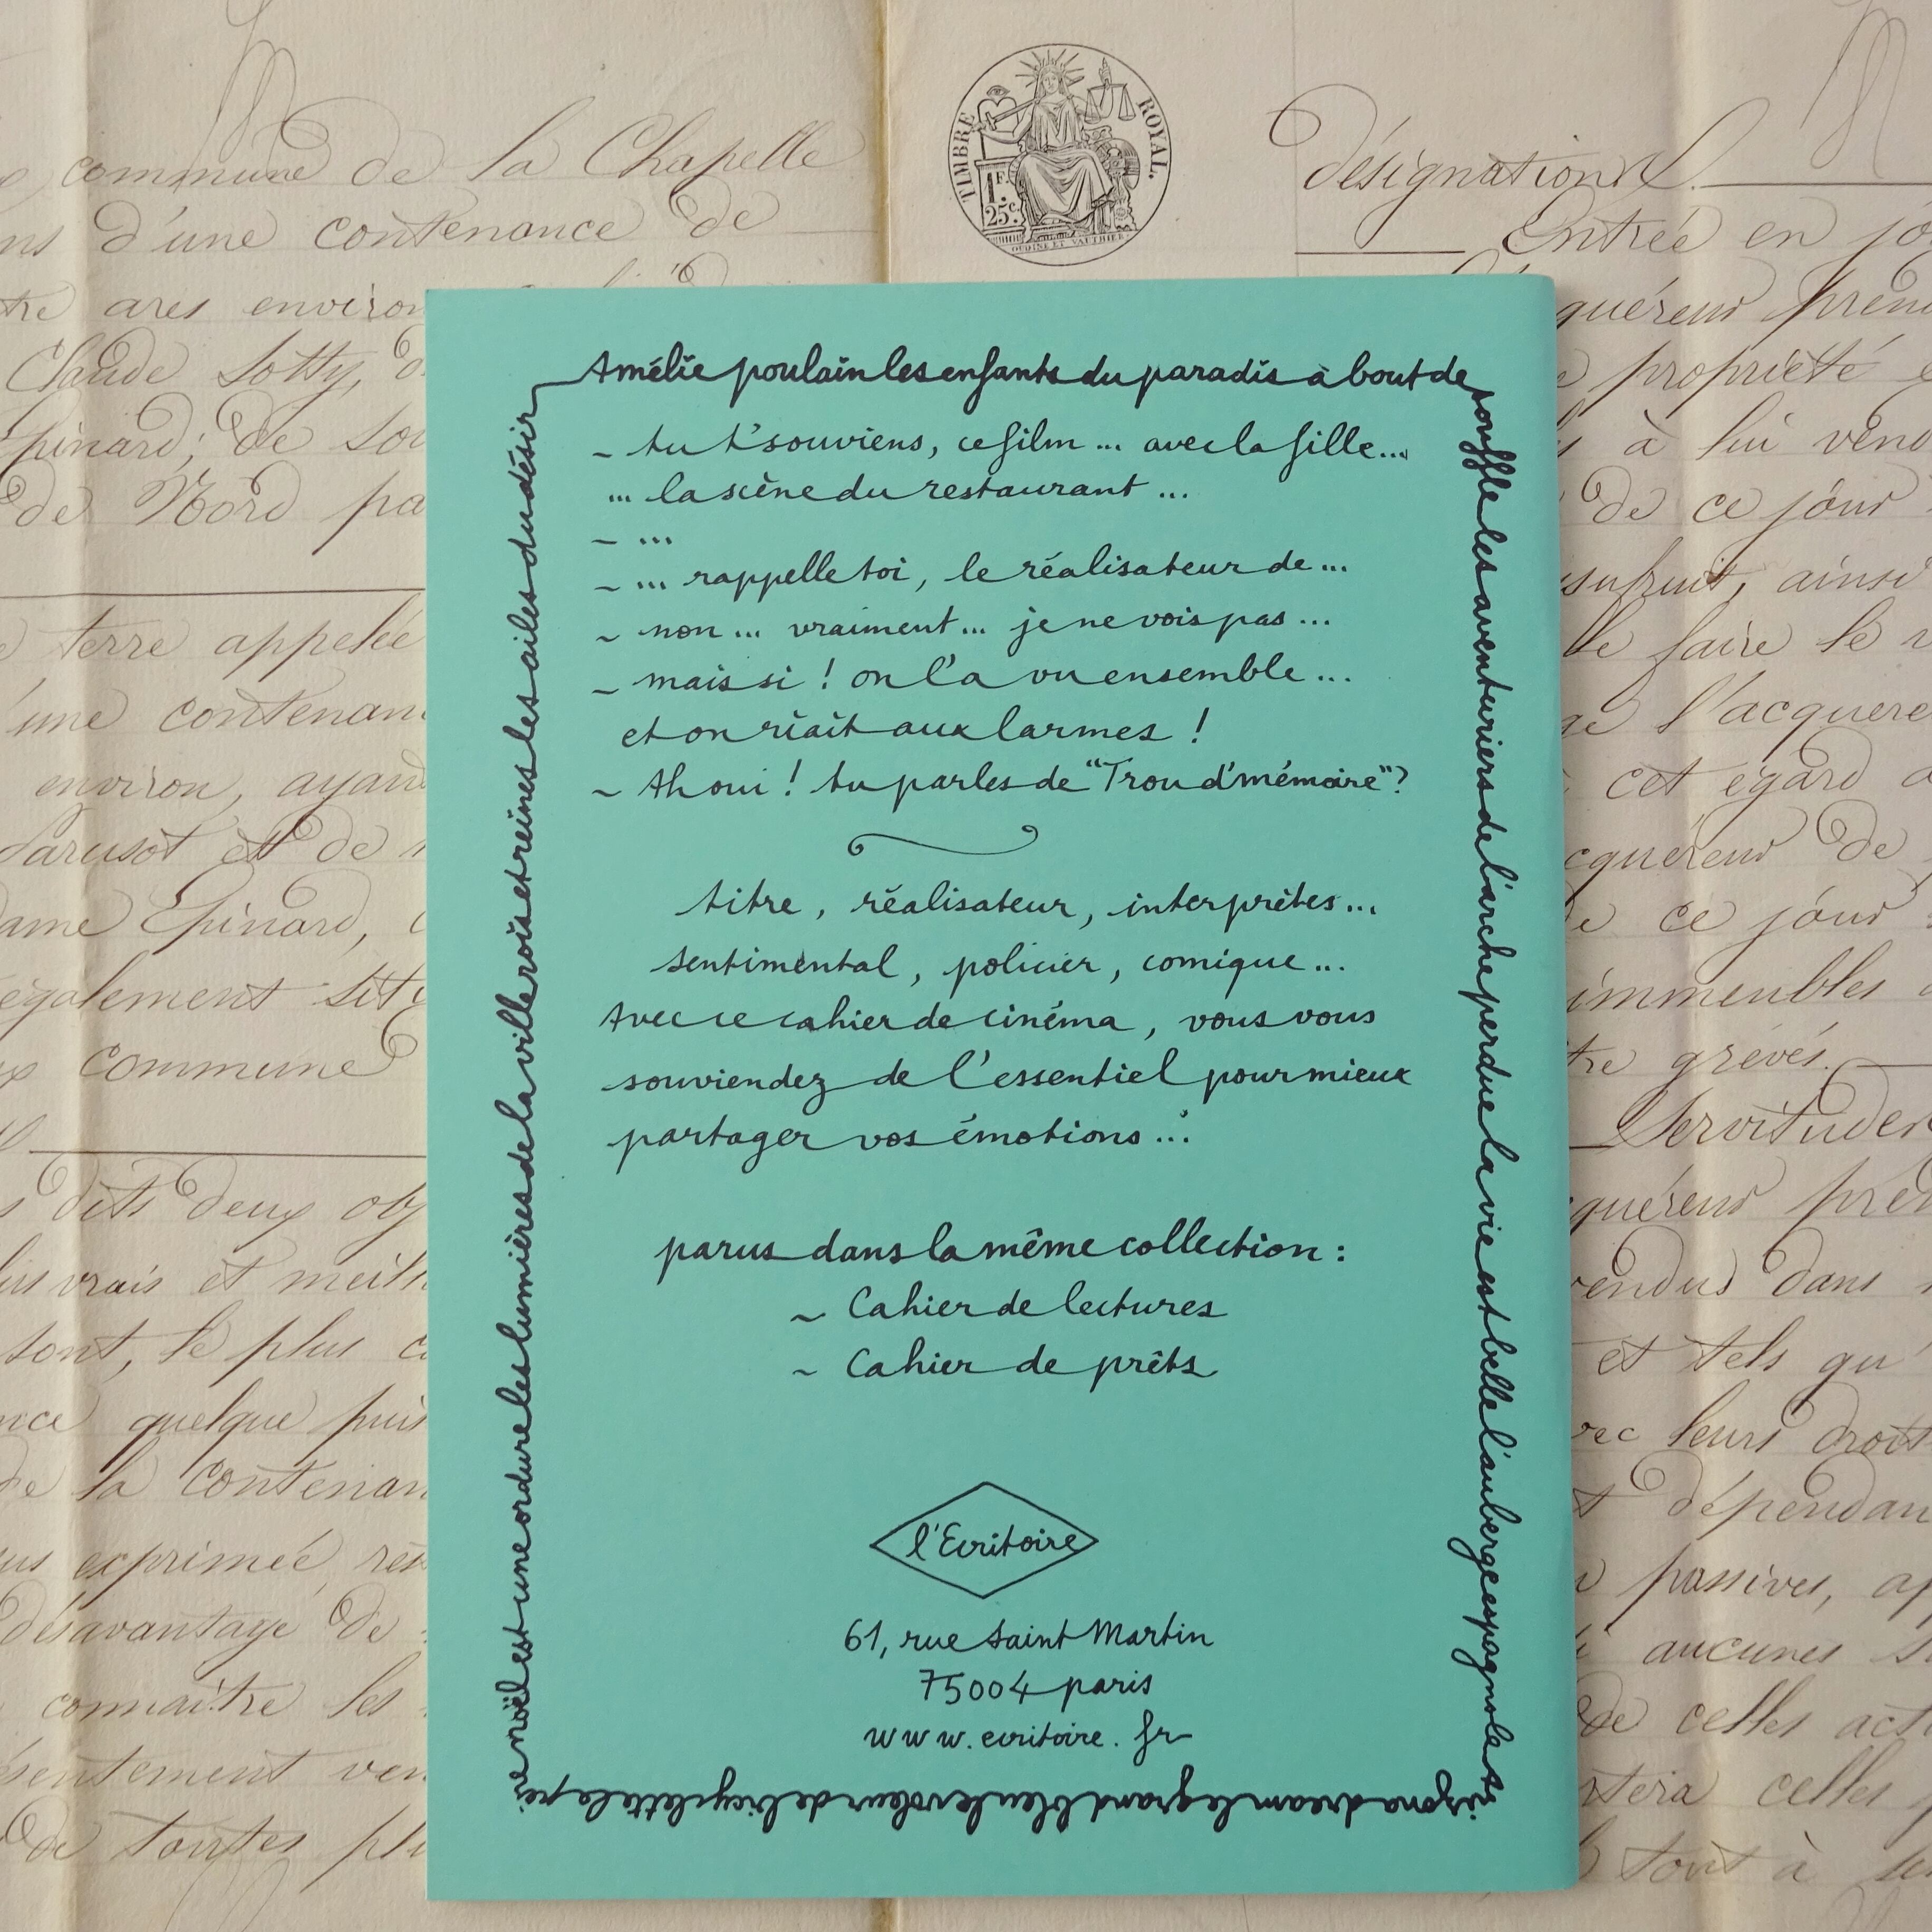 commune de la Chapelle
d'une contenance de
tre ares environ
Claude Sotty,
Epinard; de
de Nord
terre appelée
une
environ,
et de
Epinard,
également
commune
dits deux
vrais et
sont, le plus
quelque
de la
exprimée,
désavantage de
connaître les
de toutes
TIMBRE ROYAL.
1F. 25c.
OUDINÉ ET VAUTHIER
Désignation.
Entrée en
propriété
à lui
de ce jour
ainsi
faire le
l'acquere
à cet égard
de
de ce jour
immeubles
grevés.
Servitudes
dans
et tels qu'
leurs droits
passives,
aucunes
de celles
celles
tout à
Amélie poulain les enfants du paradis à bout de
souffle les aventuriers de l'arche perdue la vie est belle l'auberge espagnole a
rizona dream le grand bleu le voleur de bicyclette le pè
re noël est une ordure les lumières de la ville rois et reines les ailes du désir
- tu t'souviens, ce film ... avec la fille...
... la scène du restaurant ...
- ...
- ... rappelle toi, le réalisateur de ...
- non ... vraiment ... je ne vois pas ...
- mais si ! on l'a vu ensemble ...
et on riait aux larmes !
- Ah oui ! tu parles de "Trou d'mémoire" ?
titre, réalisateur, interprètes...
sentimental, policier, comique ...
Avec ce cahier de cinéma, vous vous
souviendez de l'essentiel pour mieux
partager vos émotions ...
parus dans la même collection :
~ Cahier de lectures
~ Cahier de prêts
l'Ecritoire
61, rue Saint Martin
75004 paris
www.ecritoire.fr